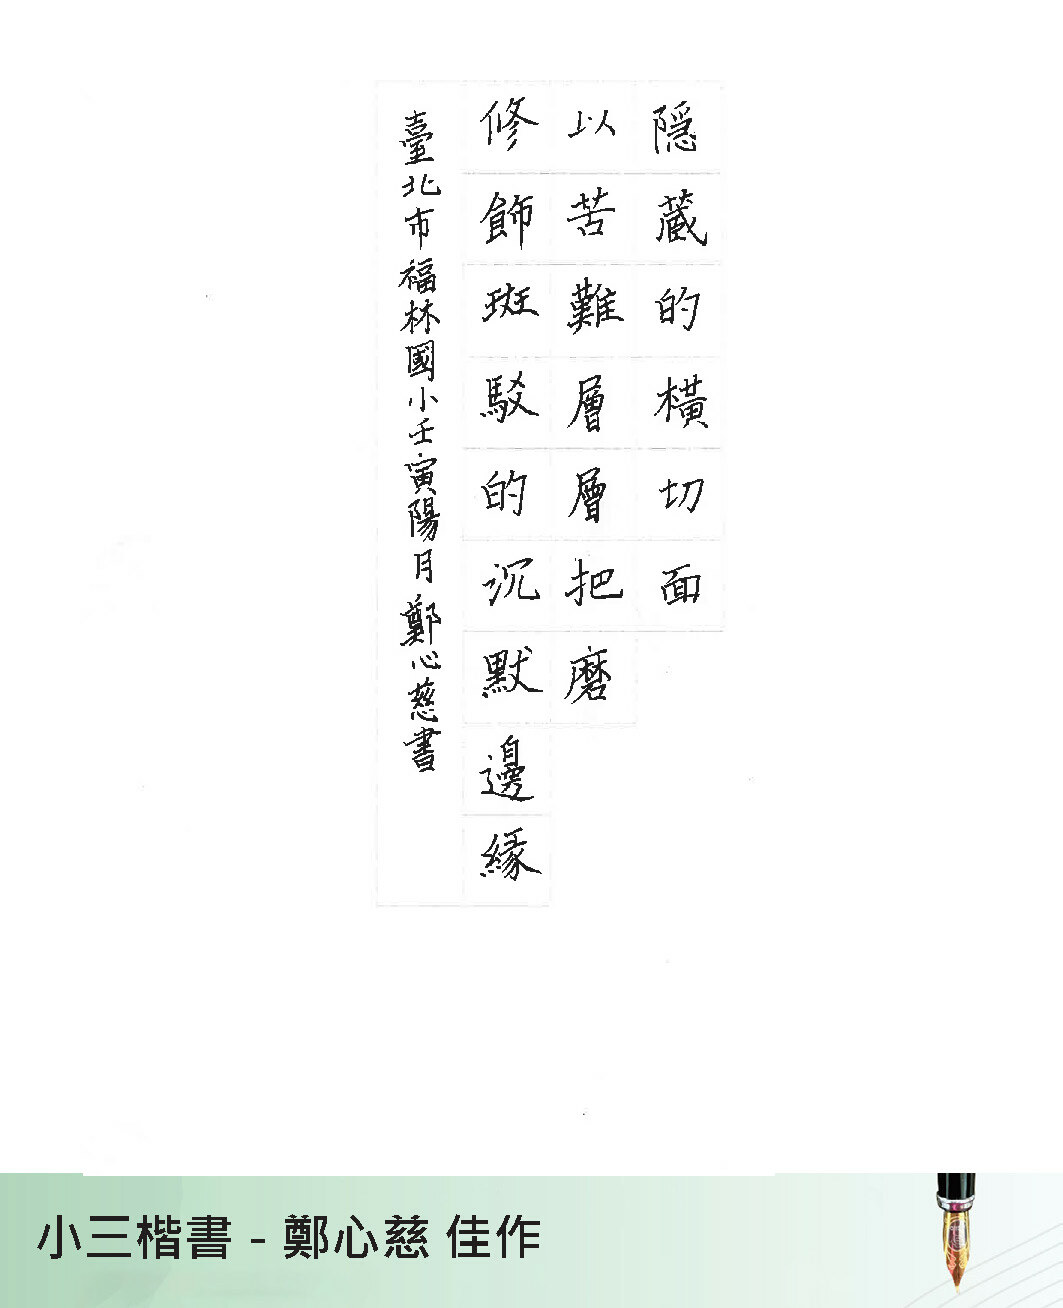 隱藏的橫切面
以苦難層層把磨
修飾斑駁的沉默邊緣
臺北市福林國小壬寅陽月鄭心慈書
小三楷書 - 鄭心慈 佳作